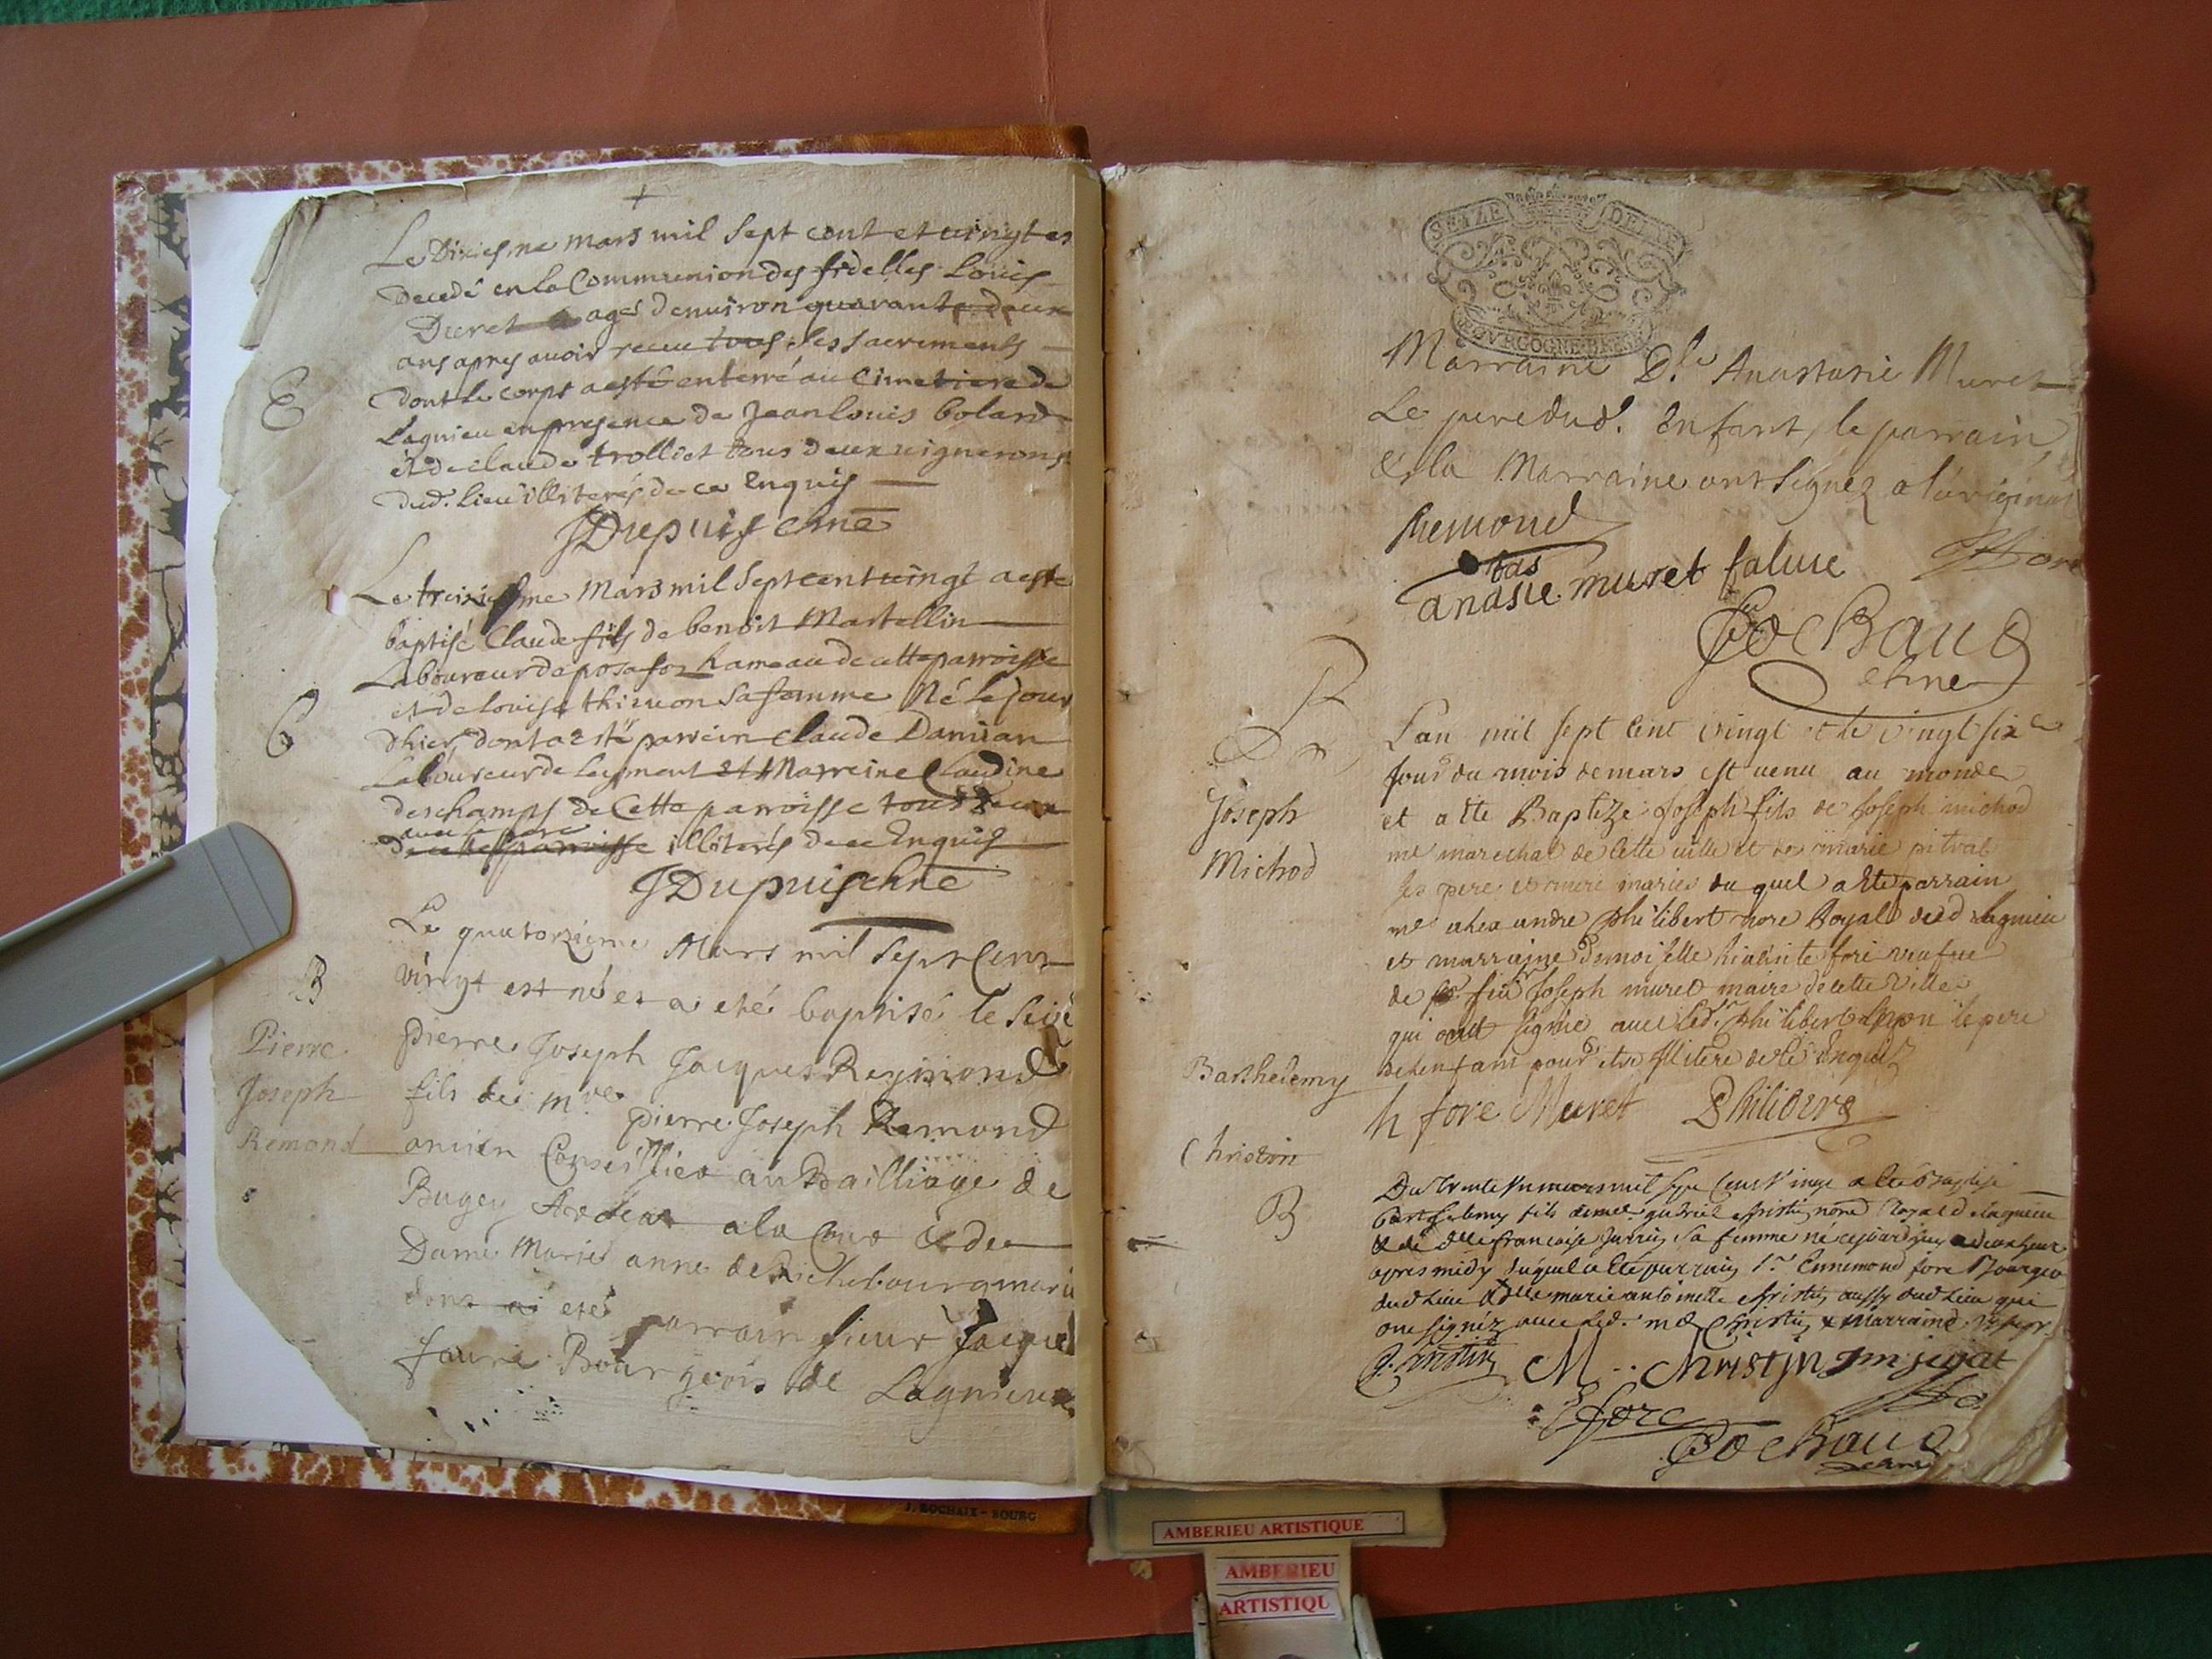 Le Dixiesme mars mil sept cent et vingt est
Decedé en la Communion des fidelles Louis
Ducret agé denuiron quarante deux
ans apres auoir receu tous les sacrements
dont le corps a esté enterré au Cimetiere de
Lagnieu en presence de Jean Louis bolard
E
et de claude trolliet tous deux uignerons
dud. lieu illiterés de ce Enquis
JDupuis chne
Le treiziesme Mars mil sept cent uingt a este
baptisé Claude fils de benoit Martellin
Laboureur de posafoz hameau de cette parroisse
et de Louise thiuuon sa femme Né le jour
dhier, dont a esté parrein Claude Damian
Laboureur de leyment et Marreine Claudine
deschamps de Cette parroisse tous deux
auec le pere
de cette parroisse illiterés de ce Enquis
JDupuis chne
Le quatorzieme Mars mil sept Cent
vingt est né et a eté baptisé le
B
Pierre
Joseph
Remond
pierre Joseph Jacques Reymond
fils de mre pierre Joseph Remond
ancien Conseillier au Bailliage de
Bugey a la Cour & de
Dame Marie anne de Richebourg
dont a eté parrain sieur Jacque
faure Bourgeois de Lagnieu
SEIZE DEN
BOURGOGNE BRESSE
Marraine Dle Anastasie Muret
Le pere dud. Enfant, le parrain,
& la Marraine ont signez a l'original
Remond
tas
anasie muret faluie
fore
Cochaud
chne
B
Joseph
Michod
L'an mil sept cent vingt et le vingt six
jour du mois de mars est uenu au monde
et a ete Baptize Joseph fils de Joseph michod
me marechal de cette uille et de marie pitral
ses pere et mere maries du quel a ete parrain
me alexandre philibert nore Royal dud lagnieu
et marraine Demoiselle hiacinte fore veufue
de feu Sr Joseph muret maire de cette ville
qui ont signé auec led. Sr philibert & non le pere
de lenfant pour etre illitere de ce Enquis
h fore Muret Philibert
Barthelemy
Christin
B
Du trente un mars mil sept Cent Vingt a ete Baptisé
barthelemy fils de me gabriel christin nore Royal de lagnieu
& de dlle francoise sa femme né ce jourdhuy a deux heures
apres midy duquel a ete parrain Sr Ennemond fore Bourgeo
dud lieu & dlle marie antoinette christin aussy dud lieu qui
ont signéz auec led. me Christin
G. Christin M. Christin
fore
Cochaud
chne
J. ROCHAIX - BOURG
AMBERIEU ARTISTIQUE
AMBERIEU
ARTISTIQU